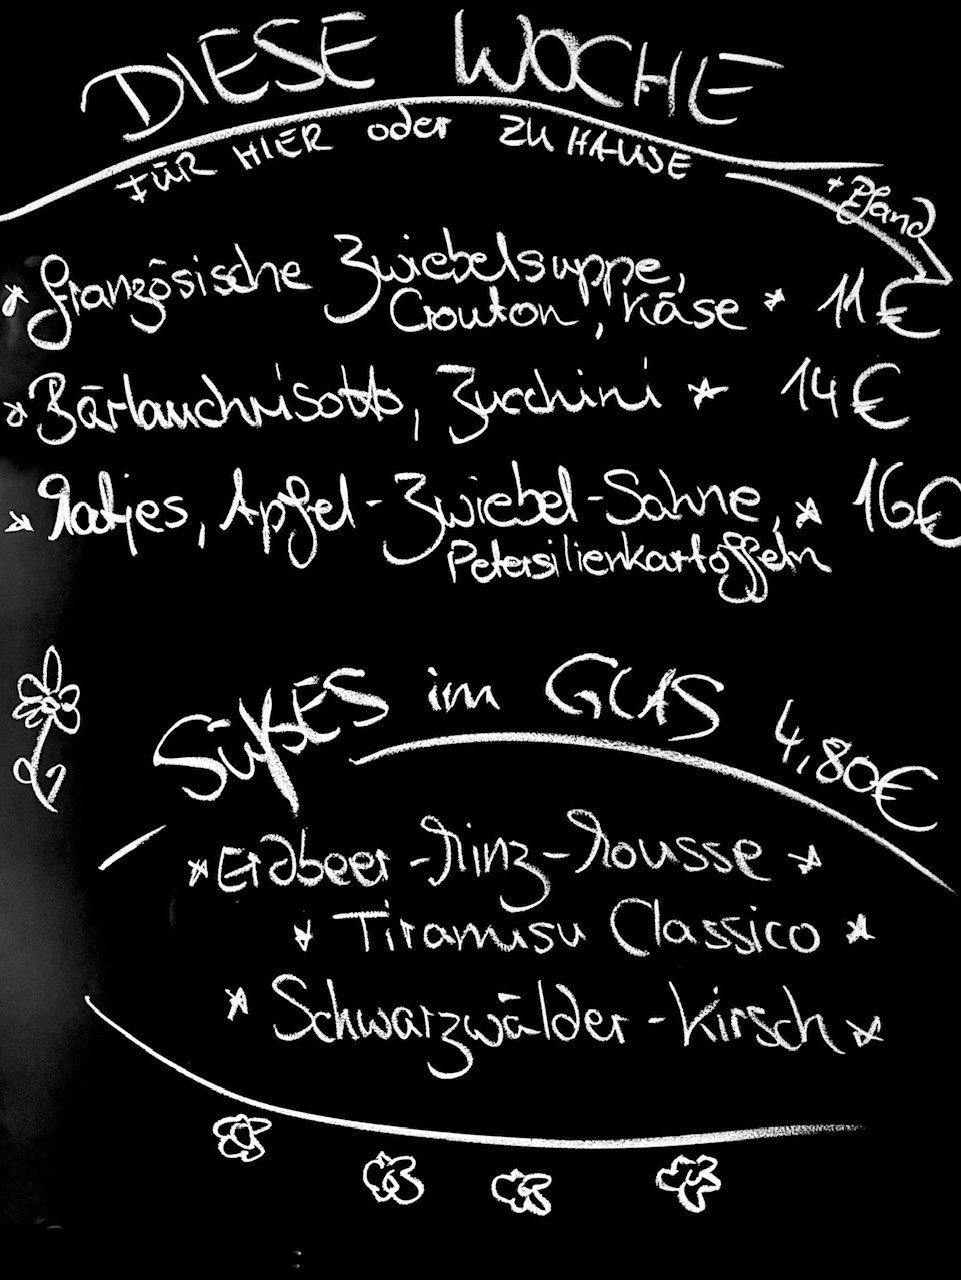 DIESE WOCHE
FÜR HIER oder ZU HAUSE
+ Pfand
* Französische Zwiebelsuppe,
Crouton, Käse * 11€
* Bärlauchrisotto, Zucchini * 14€
* Matjes, Apfel-Zwiebel-Sahne, * 16€
Petersilienkartoffeln
SÜßES im GLAS 4,80€
* Erdbeer-Minz-Mousse *
* Tiramisu Classico *
* Schwarzwälder-Kirsch *